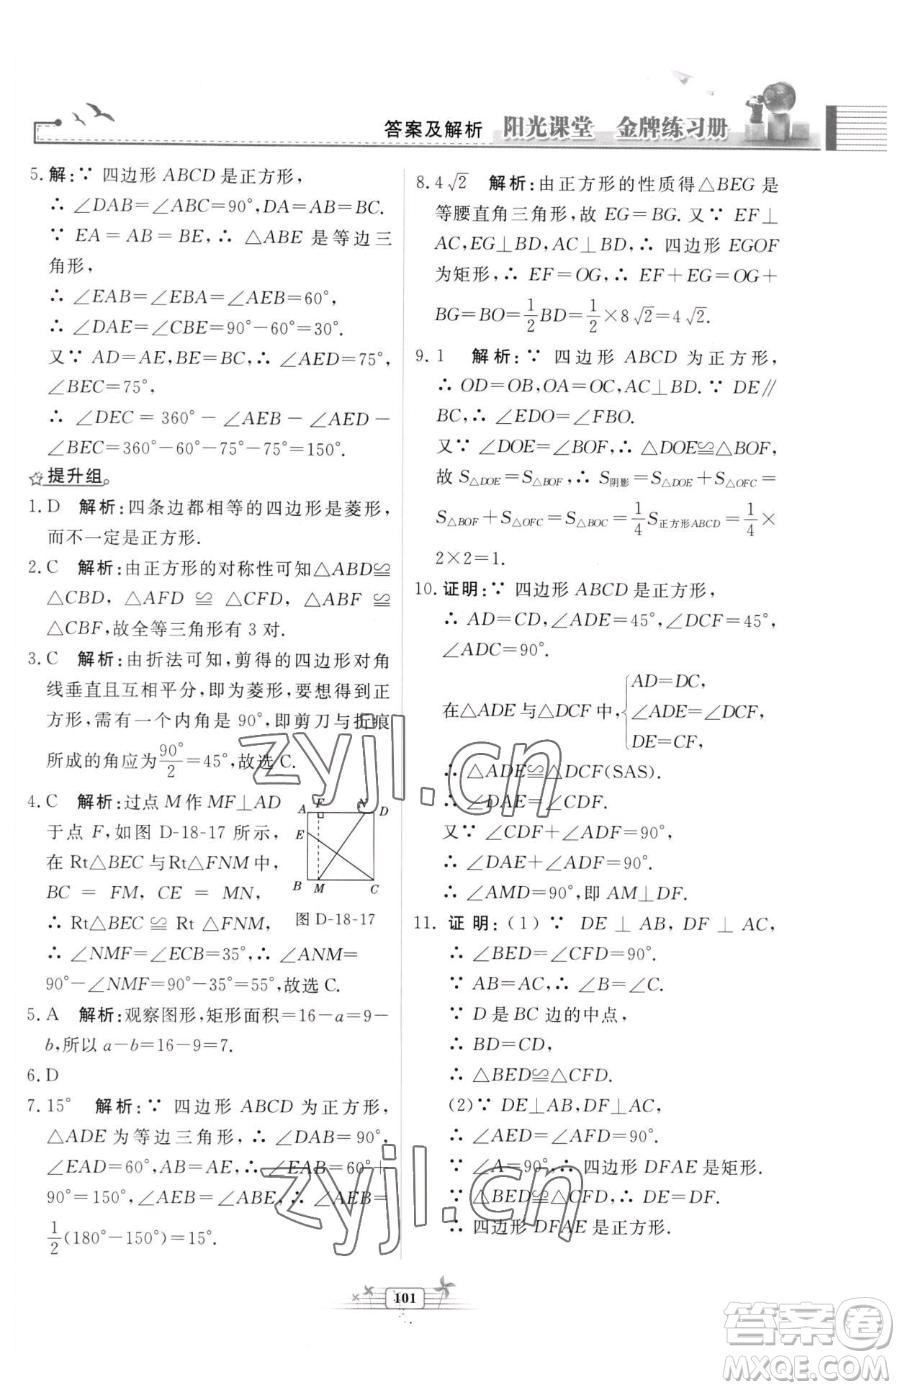 答案及解析 阳光课堂 金牌练习册
5. 解:∵ 四边形 ABCD 是正方形,
∴ ∠DAB=∠ABC=90°,DA=AB=BC.
∵ EA=AB=BE,∴ △ABE 是等边三
角形,
∴ ∠EAB=∠EBA=∠AEB=60°,
∴ ∠DAE=∠CBE=90°-60°=30°.
又∵ AD=AE,BE=BC,∴ ∠AED=75°,
∠BEC=75°,
∴ ∠DEC = 360° - ∠AEB - ∠AED -
∠BEC=360°-60°-75°-75°=150°.
提升组
1. D 解析:四条边都相等的四边形是菱形,
而不一定是正方形.
2. C 解析:由正方形的对称性可知△ABD≌
△CBD, △AFD ≌ △CFD, △ABF ≌
△CBF,故全等三角形有 3 对.
3. C 解析:由折法可知,剪得的四边形对角
线垂直且互相平分,即为菱形,要得到正
方形,需有一个内角是 90°,即剪刀与折痕
所成的角应为90°/2=45°,故选 C.
4. C 解析:过点 M 作 MF⊥AD
于点 F,如图 D-18-17 所示,
在 Rt△BEC 与 Rt△FNM 中,
BC = FM, CE = MN,
∴ Rt△BEC ≌ Rt △FNM,
∴ ∠NMF=∠ECB=35°,∴ ∠ANM=
90°-∠NMF=90°-35°=55°,故选 C.
A F N D
E
B M C
图 D-18-17
5. A 解析:观察图形,矩形面积=16-a=9-
b,所以 a-b=16-9=7.
6. D
7. 15° 解析:∵ 四边形 ABCD 为正方形,
△ADE 为等边三角形,∴ ∠DAB=90°,
∠EAD=60°,AB=AE,∴ ∠EAB=60°+
90°=150°,∠AEB=∠ABE,∴ ∠AEB=
1/2(180°-150°)=15°.
8. 4√2 解析:由正方形的性质得△BEG 是
等腰直角三角形,故 EG=BG. 又∵ EF⊥
AC,EG⊥BD,AC⊥BD,∴ 四边形 EGOF
为矩形,∴ EF=OG,∴ EF+EG=OG+
BG=BO=1/2BD=1/2×8√2=4√2.
9. 1 解析:∵ 四边形 ABCD 为正方形,
∴ OD=OB,OA=OC,AC⊥BD. ∵ DE∥
BC,∴ ∠EDO=∠FBO.
又∵ ∠DOE=∠BOF,∴ △DOE≌△BOF,
故 S△DOE=S△BOF,∴ S阴影=S△DOE+S△OFC=
S△BOF+S△OFC=S△BOC=1/4S正方形ABCD=1/4×
2×2=1.
10. 证明:∵ 四边形 ABCD 是正方形,
∴ AD=CD,∠ADE=45°,∠DCF=45°,
∠ADC=90°.
在△ADE 与△DCF 中,{AD=DC, ∠ADE=∠DCF, DE=CF,
∴ △ADE≌△DCF(SAS).
∴ ∠DAE=∠CDF.
又∵ ∠CDF+∠ADF=90°,
∴ ∠DAE+∠ADF=90°,
∴ ∠AMD=90°,即 AM⊥DF.
11. 证明:(1) ∵ DE ⊥ AB, DF ⊥ AC,
∴ ∠BED=∠CFD=90°.
∵ AB=AC,∴ ∠B=∠C.
∵ D 是 BC 边的中点,
∴ BD=CD.
∴ △BED≌△CFD.
(2)∵ DE⊥AB,DF⊥AC,
∴ ∠AED=∠AFD=90°.
∵ ∠A=90°,∴ 四边形 DFAE 是矩形.
∵ △BED≌△CFD,∴ DE=DF.
∴ 四边形 DFAE 是正方形.
101
zyjl.cn
zyjl.cn
答案圈
MXQE.COM